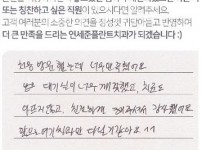 또는 칭찬하고 싶은 직원이 있으시다면 알려주세요.
고객 여러분의 소중한 의견을 정성껏 귀담아듣고 반영하여
더 큰 만족을 드리는 연세준플란트치과가 되겠습니다 :)
처음 방문 했는데 너무 만족했어요
또 대기실이 너무 깨끗했고, 치료도
아프지 않고, 친절하게 해주셔서 감사했어요
앞으로 여기 치과만 다닐거같아요 ㅋㅋ